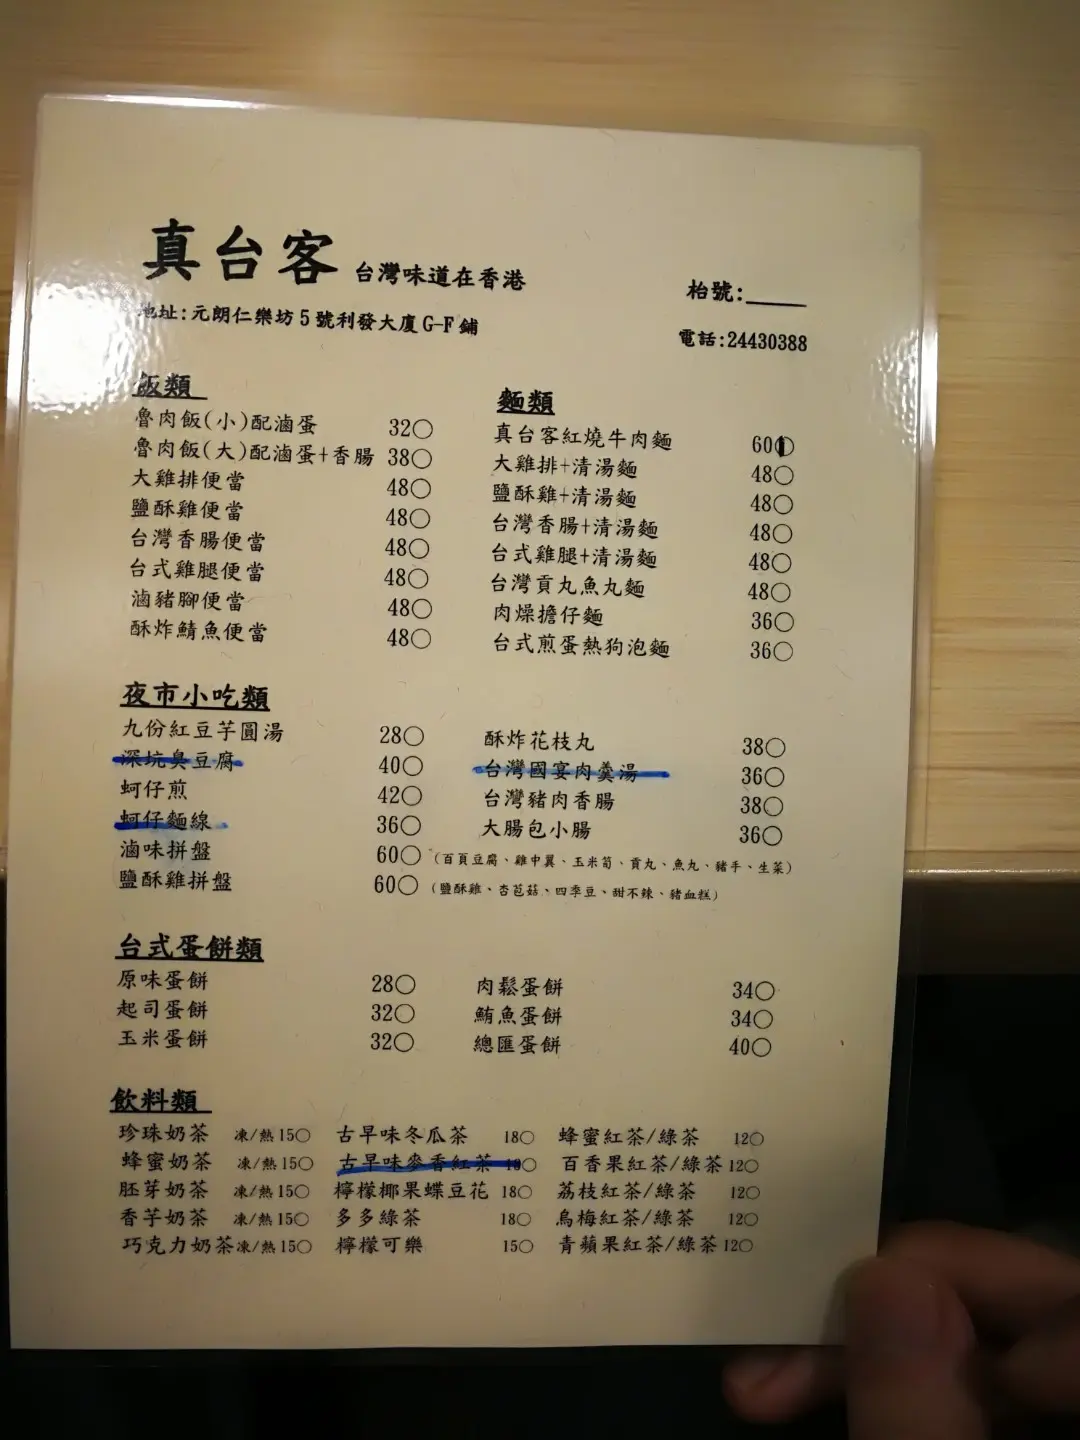 真台客 台灣味道在香港
枱號:_____
地址:元朗仁樂坊5號利發大廈G-F鋪
電話:24430388
飯類
魯肉飯(小)配滷蛋 32○
魯肉飯(大)配滷蛋+香腸 38○
大雞排便當 48○
鹽酥雞便當 48○
台灣香腸便當 48○
台式雞腿便當 48○
滷豬腳便當 48○
酥炸鯖魚便當 48○
麵類
真台客紅燒牛肉麵 60○
大雞排+清湯麵 48○
鹽酥雞+清湯麵 48○
台灣香腸+清湯麵 48○
台式雞腿+清湯麵 48○
台灣貢丸魚丸麵 48○
肉燥擔仔麵 36○
台式煎蛋熱狗泡麵 36○
夜市小吃類
九份紅豆芋圓湯 28○
深坑臭豆腐 40○
蚵仔煎 42○
蚵仔麵線 36○
滷味拼盤 60○ (百頁豆腐、雞中翼、玉米筍、貢丸、魚丸、豬手、生菜)
鹽酥雞拼盤 60○ (鹽酥雞、杏苞菇、四季豆、甜不辣、豬血糕)
酥炸花枝丸 38○
台灣國宴肉羹湯 36○
台灣豬肉香腸 38○
大腸包小腸 36○
台式蛋餅類
原味蛋餅 28○
起司蛋餅 32○
玉米蛋餅 32○
肉鬆蛋餅 34○
鮪魚蛋餅 34○
總匯蛋餅 40○
飲料類
珍珠奶茶 凍/熱15○
蜂蜜奶茶 凍/熱15○
胚芽奶茶 凍/熱15○
香芋奶茶 凍/熱15○
巧克力奶茶凍/熱15○
古早味冬瓜茶 18○
古早味麥香紅茶 18○
檸檬椰果蝶豆花 18○
多多綠茶 18○
檸檬可樂 15○
蜂蜜紅茶/綠茶 12○
百香果紅茶/綠茶12○
荔枝紅茶/綠茶 12○
烏梅紅茶/綠茶 12○
青蘋果紅茶/綠茶12○